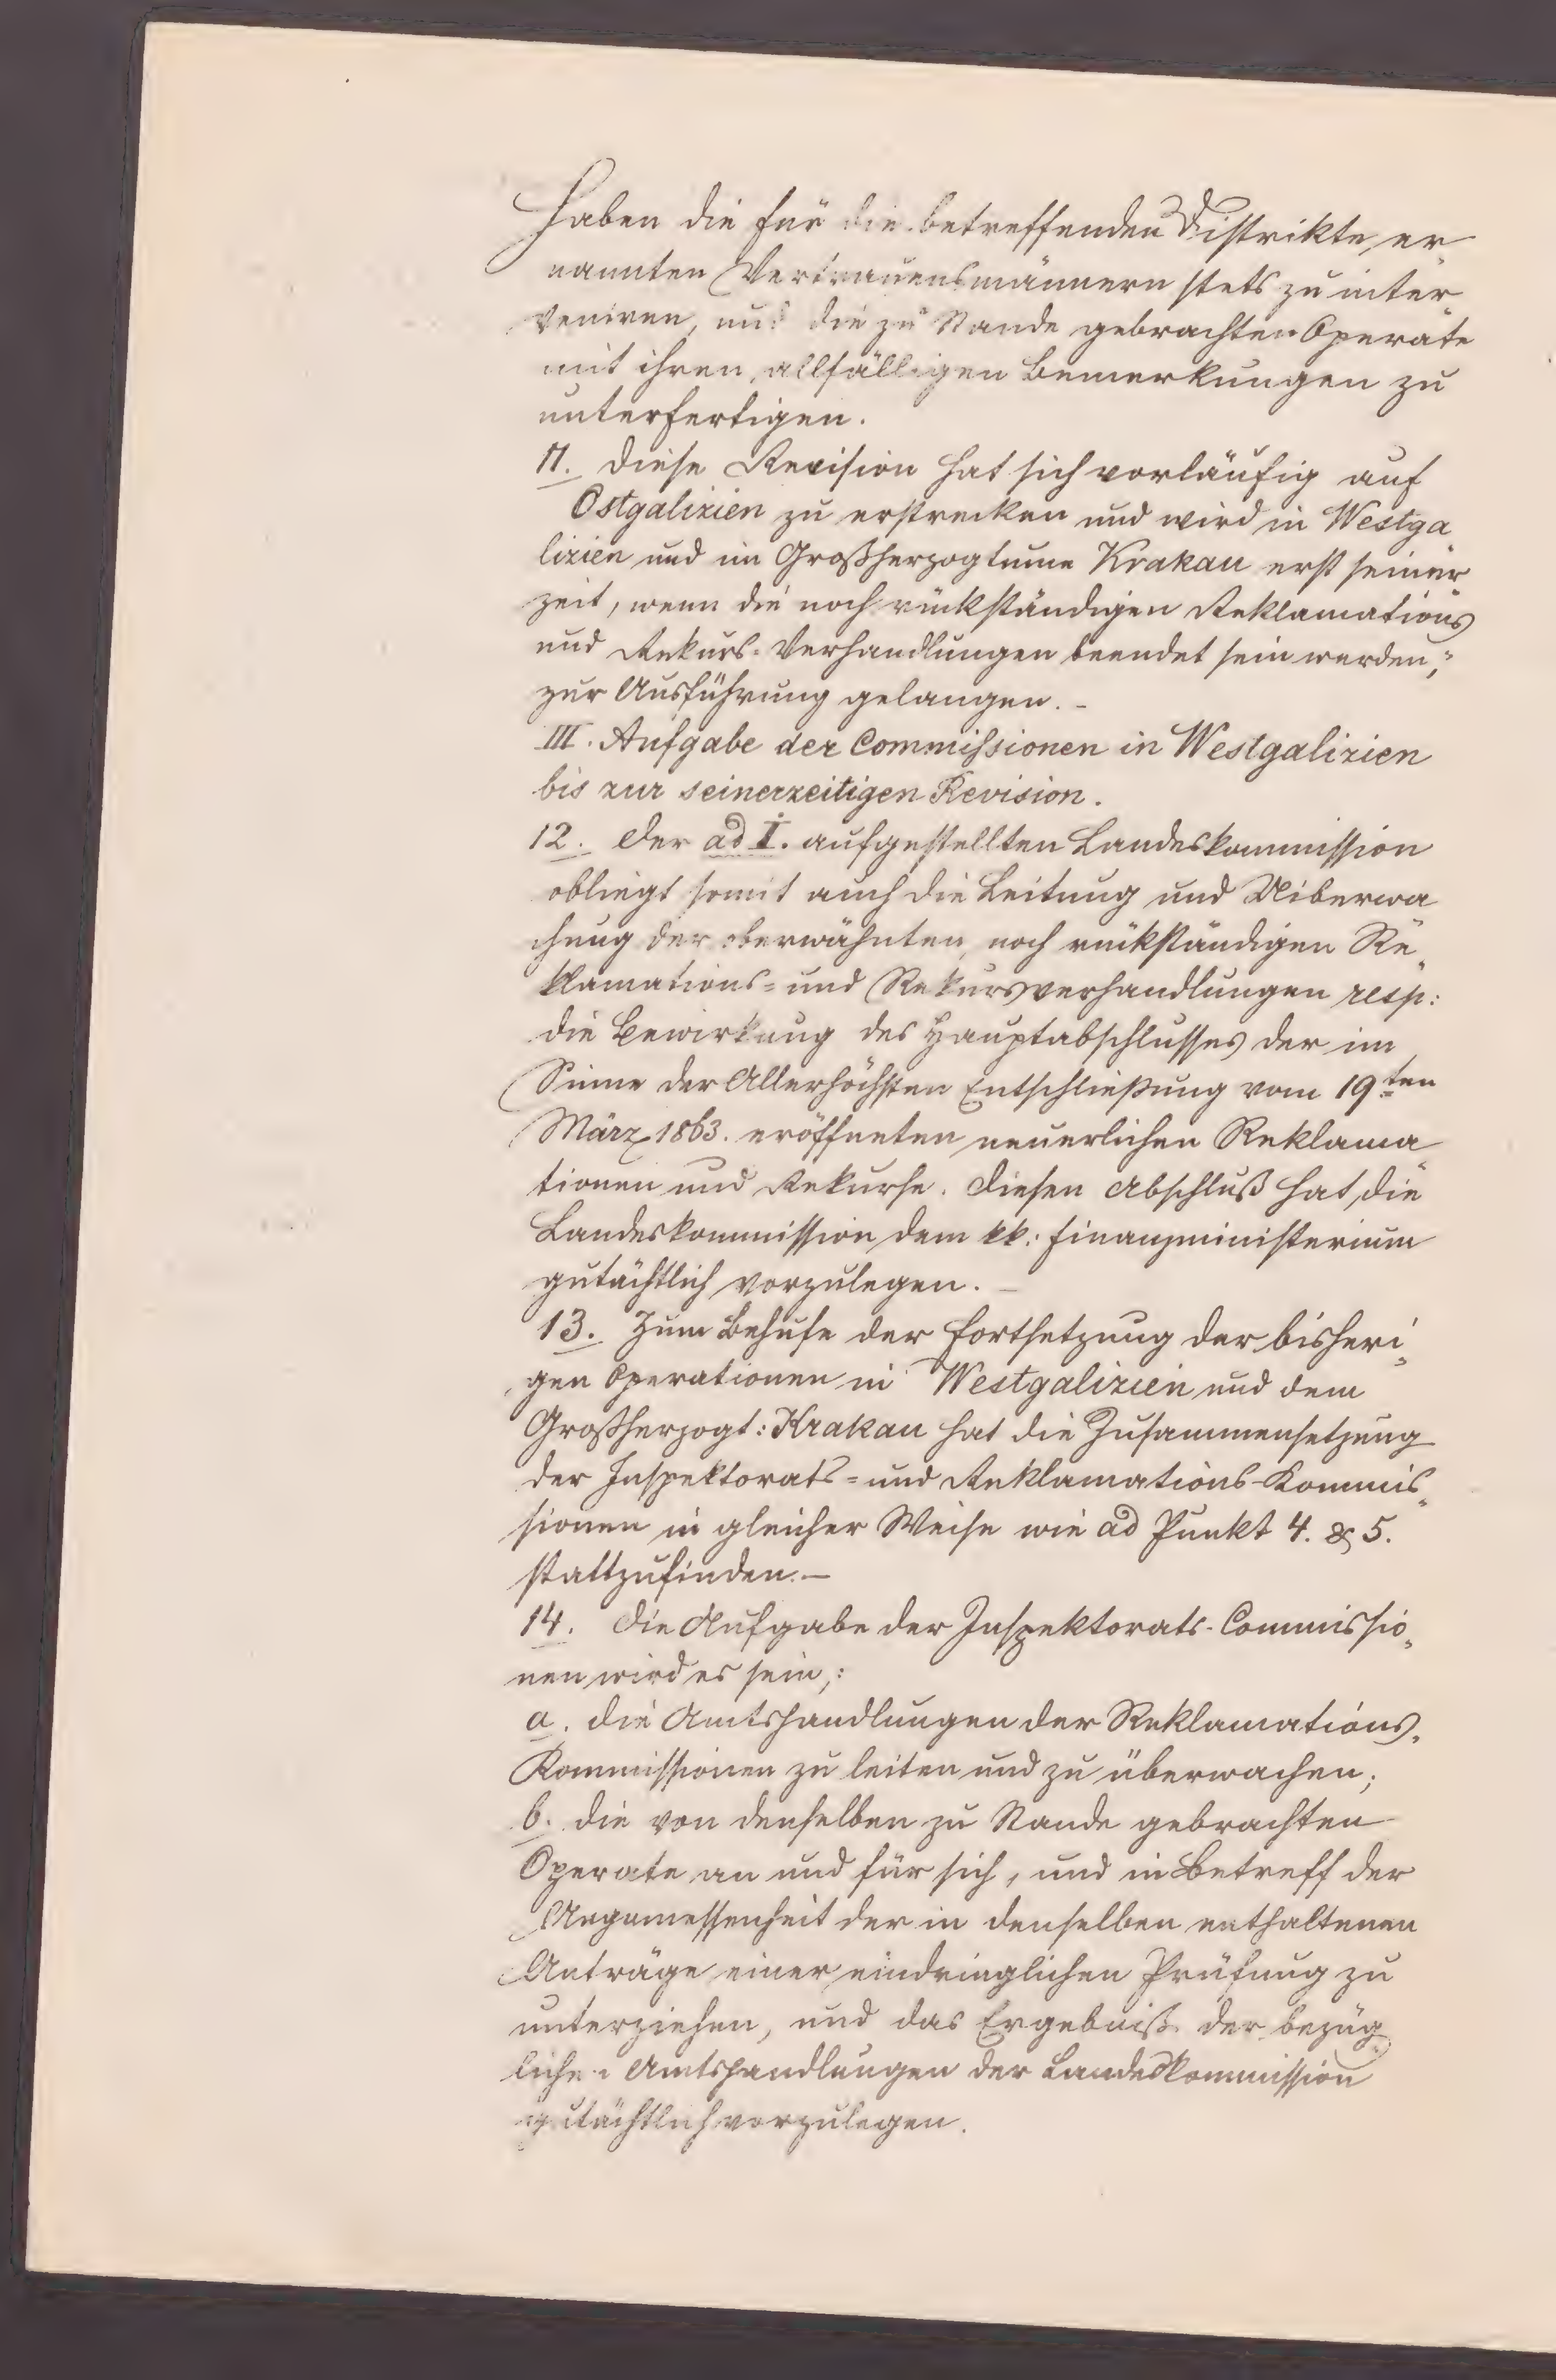 haben die für die betreffenden Distrikte er-
nannten Vertrauensmännern stets zu inter-
veniren, und die zu Stande gebrachten Operate
mit ihren allfälligen Bemerkungen zu
unterfertigen.
11. Diese Revision hat sich vorläufig auf
Ostgalizien zu erstrecken und wird in Westga
lizien und im Großherzogtume Krakau erst seiner
zeit, wenn die noch rückständigen Reklamations
und Rekurs-Verhandlungen beendet sein werden,
zur Ausführung gelangen. –
III. Aufgabe der Commissionen in Westgalizien
bis zur seinerzeitigen Revision.
12. Der ad I. aufgestellten Landeskommission
obliegt somit auch die Leitung und Uiberwa
chung der oberwähnten, noch rückständigen Re„
klamations= und Rekursverhandlungen resp:
die Bewirkung des Hauptabschlusses der im
Sinne der Allerhöchsten Entschließung vom 19ten
März 1863. eröffneten neuerlichen Reklama
tionen und Rekurse. Diesen Abschluß hat die
Landeskommission dem kk: Finanzministerium
gutächtlich vorzulegen. –
13. Zum Behufe der Fortsetzung der bisheri„
gen Operationen in Westgalizien und dem
Großherzogt: Krakau hat die Zusammensetzung
der Inspektorats= und Reklamations-Kommis„
sionen in gleicher Weise wie ad Punkt 4. & 5.
stattzufinden. –
14. Die Aufgabe der Inspektorats-Commissio„
nen wird es sein,:
a. die Amtshandlungen der Reklamations-
Kommissionen zu leiten und zu überwachen;
b. die von denselben zu Stande gebrachten
Operate an und für sich, und in Betreff der
Angemessenheit der in denselben enthaltenen
Anträge einer eindringlichen Prüfung zu
unterziehen, und das Ergebniß der bezüg
lichen Amtshandlungen der Landeskommission
gutächtlich vorzulegen.